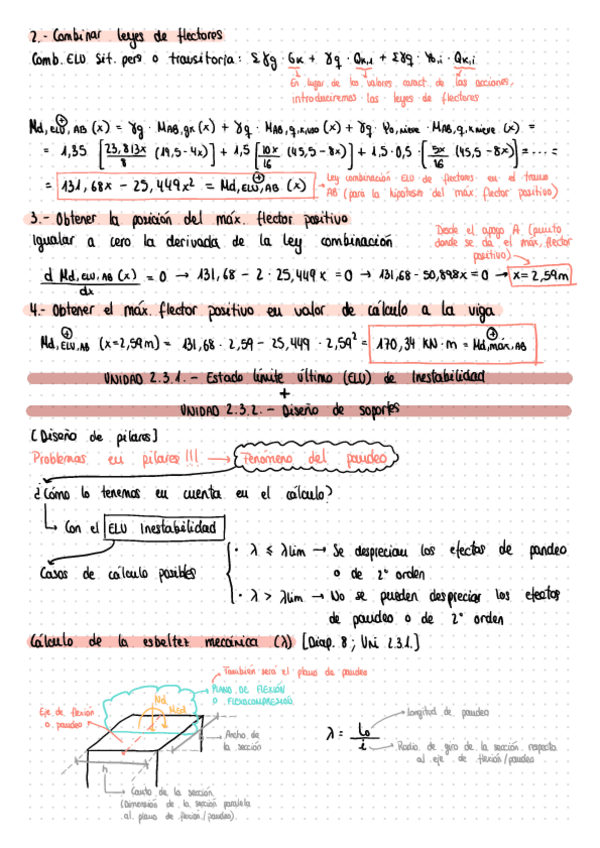 2.- Combinar leyes de flectores
Comb. ELU Sit. pers o transitoria: Σγg · Gk + γq · Qk,1 + Σγq · Ψo,i · Qk,i
En lugar de los valores caract. de las acciones,
introduciremos las leyes de flectores
Md,ELU,AB⊕ (x) = γg · MAB,gk (x) + γq · MAB,q,k,uso (x) + γq · Ψo,nieve · MAB,q,k nieve (x) =
= 1,35 [23,813x/8 (19,5-4x)] + 1,5 [10x/16 (45,5-8x)] + 1,5·0,5 · [5x/16 (45,5-8x)] = ... =
= 131,68x - 25,449x² = Md,ELU,AB⊕ (x)
Ley combinación ELU de flectores en el tramo
AB (para la hipótesis del máx. flector positivo)
3.- Obtener la posición del máx. flector positivo
Igualar a cero la derivada de la ley combinación
Desde el apoyo A (punto
donde se da el máx. flector
positivo)
d Md,ELU,AB (x)/dx = 0 → 131,68 - 2 · 25,449x = 0 → 131,68 - 50,898x = 0 → x = 2,59m
4.- Obtener el máx. flector positivo en valor de cálculo a la viga
Md,ELU,AB⊕ (x=2,59m) = 131,68 · 2,59 - 25,449 · 2,59² = 170,34 KN·m = Md,máx,AB⊕
UNIDAD 2.3.1. - Estado límite último (ELU) de Inestabilidad
+
UNIDAD 2.3.2. - Diseño de soportes
[Diseño de pilares]
Problemas en pilares!!! → Fenómeno del pandeo
¿Cómo lo tenemos en cuenta en el cálculo?
Con el ELU Inestabilidad
Casos de cálculo posibles
· λ ≤ λlim → Se desprecian los efectos de pandeo
o de 2º orden
· λ > λlim → No se pueden despreciar los efectos
de pandeo o de 2º orden
Cálculo de la esbeltez mecánica (λ) [Diap. 8; Uni 2.3.1.]
También será el plano de pandeo
PLANO DE FLEXIÓN
O FLEXOCOMPRESIÓN
Eje de flexión
o pandeo
Nd
Ancho de
la sección
h
Canto de la sección
(Dimensión de la sección paralela
al plano de flexión/pandeo).
λ = lo/i
longitud de pandeo
Radio de giro de la sección respecto
al eje de flexión/pandeo